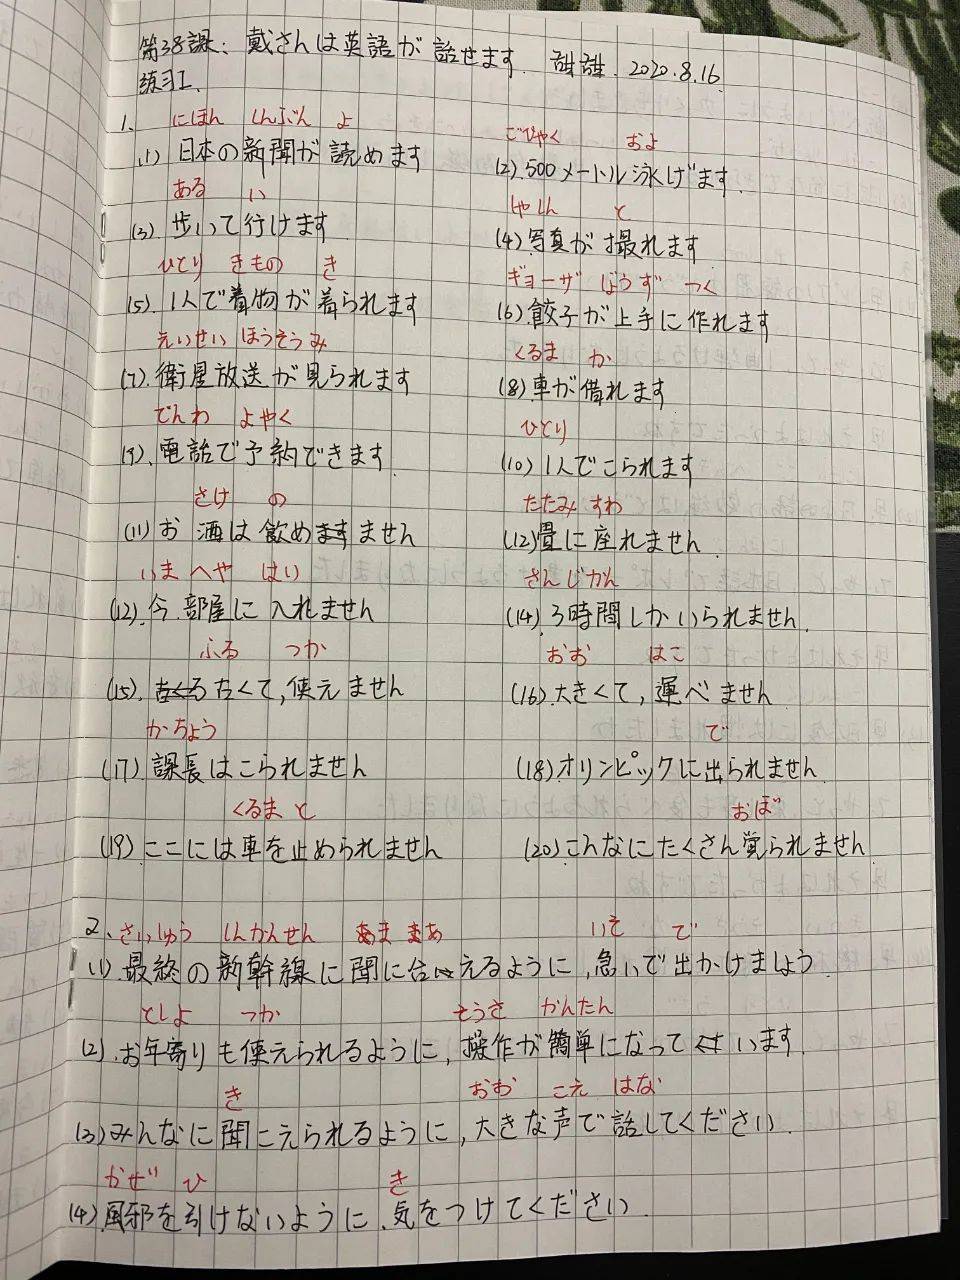 第38課：戴さんは英語が話せます. 甜甜. 2020.8.16
练习I.
1. にほん しんぶん よ ごひゃく およ
(1) 日本の新聞が読めます (2). 500メートル泳げます.
ある い しゃしん と
(3). 歩いて行けます (4) 写真が撮れます
ひとり きもの き ギョーザ じょうず つく
(5). 1人で着物が着られます (6). 餃子が上手に作れます
えいせい ほうそう み くるま か
(7). 衛星放送が見られます (8) 車が借れます
でんわ よやく ひとり
(9). 電話で予約できます (10). 1人でこられます
さけ の たたみ すわ
(11) お酒は飲めません (12) 畳に座れません.
いま へや はい さんじかん
(12). 今.部屋に入れません (14). 3時間しかいられません.
ふる つか おお はこ
(15). 古くて,使えません (16). 大きくて,運べません
かちょう で
(17) 課長はこられません (18). オリンピックに出られません.
くるま と おぼ
(19) ここには車を止められません (20). こんなにたくさん覚られません.
2. さいしゅう しんかんせん あま まあ いそ で
(1) 最終の新幹線に聞に合えるように,急いで出かけましょう.
としよ つか そうさ かんたん
(2). お年寄りも使えられるように,操作が簡単になっています.
き おお こえ はな
(3) みんなに聞こえられるように,大きな声で話してください.
かぜ ひ き
(4) 風邪を引けないように.気をつけてください.